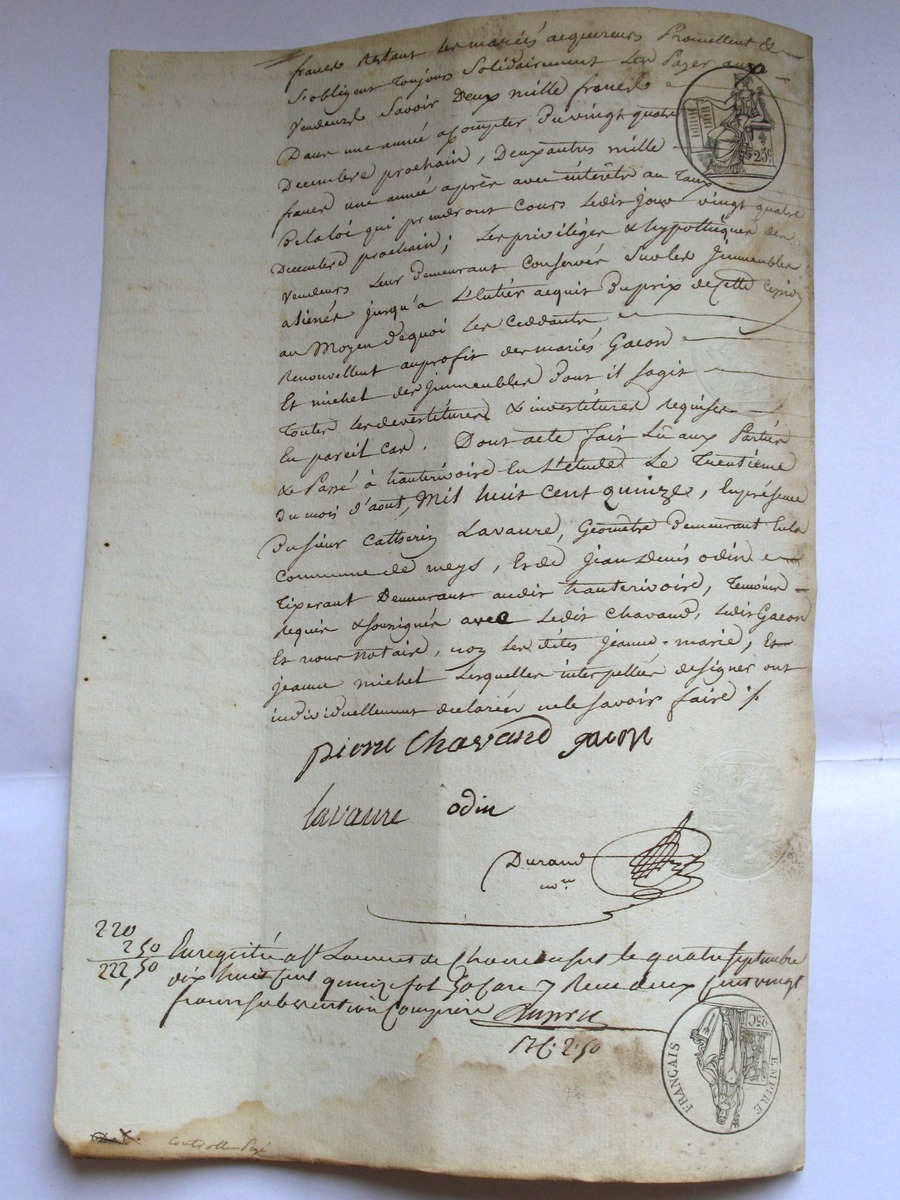 francs restant les mariés acquéreurs Promettent &
s'obligent toujours solidairement les Payer aux
vendeurs savoir Deux mille francs
Dans une année a compter Du vingt quatre
Decembre prochain, Deux autres mille
francs une année après avec intérêts au Taux
De la loi qui prendront cours ledit jour vingt quatre
Decembre prochain; les privilèges & hypothèques des
vendeurs leur demeurant conservés sur les immeubles
aliénés jusqu'à l'entier acquit Du prix de cette
au Moyen de quoi les Ceddants
Renouvellent au profit des mariés Gacon
Et michel des Jmmeubles Dont il sagit
Toutes les devestitures & investitures requises
En pareil cas. Dont acte fait Lû aux Parties
& Passé à hauterivoire En l'étude Le Trentieme
du mois d'aout, Mil huit cent quinze, En présence
Du sieur Catherin Lavaure, Géomètre Demeurant En la
Commune de meys, Et de Jean Denis odin
Tixerant Demeurant audit hauterivoire, Temoins
requis & soussignés avec Ledit Chavand, Ledit Gacon
Et nous notaire, non les dites Jeanne-marie, Et
Jeanne michel Lesquelles interpellées de signer ont
individuellement declarées ne le savoir faire ./.
pierre Chavand gacon
lavaure odin
Durand
no.re
220
2,50
222,50
Enregistré a St Laurent de Chamousset le quatre septembre
dix huit cent quinze fol 50 case 7 Recu deux cent vingt
francs subvention Comprise
2.50
Controlle Payé
25C
EMPIRE FRANÇAIS
25C